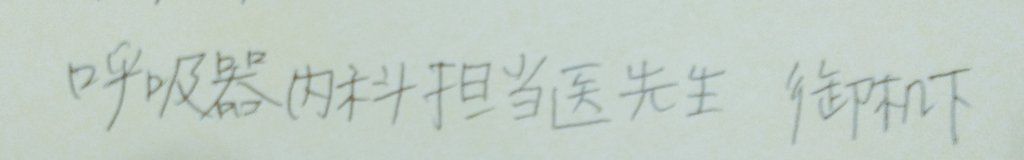 呼吸器内科担当医先生 御机下